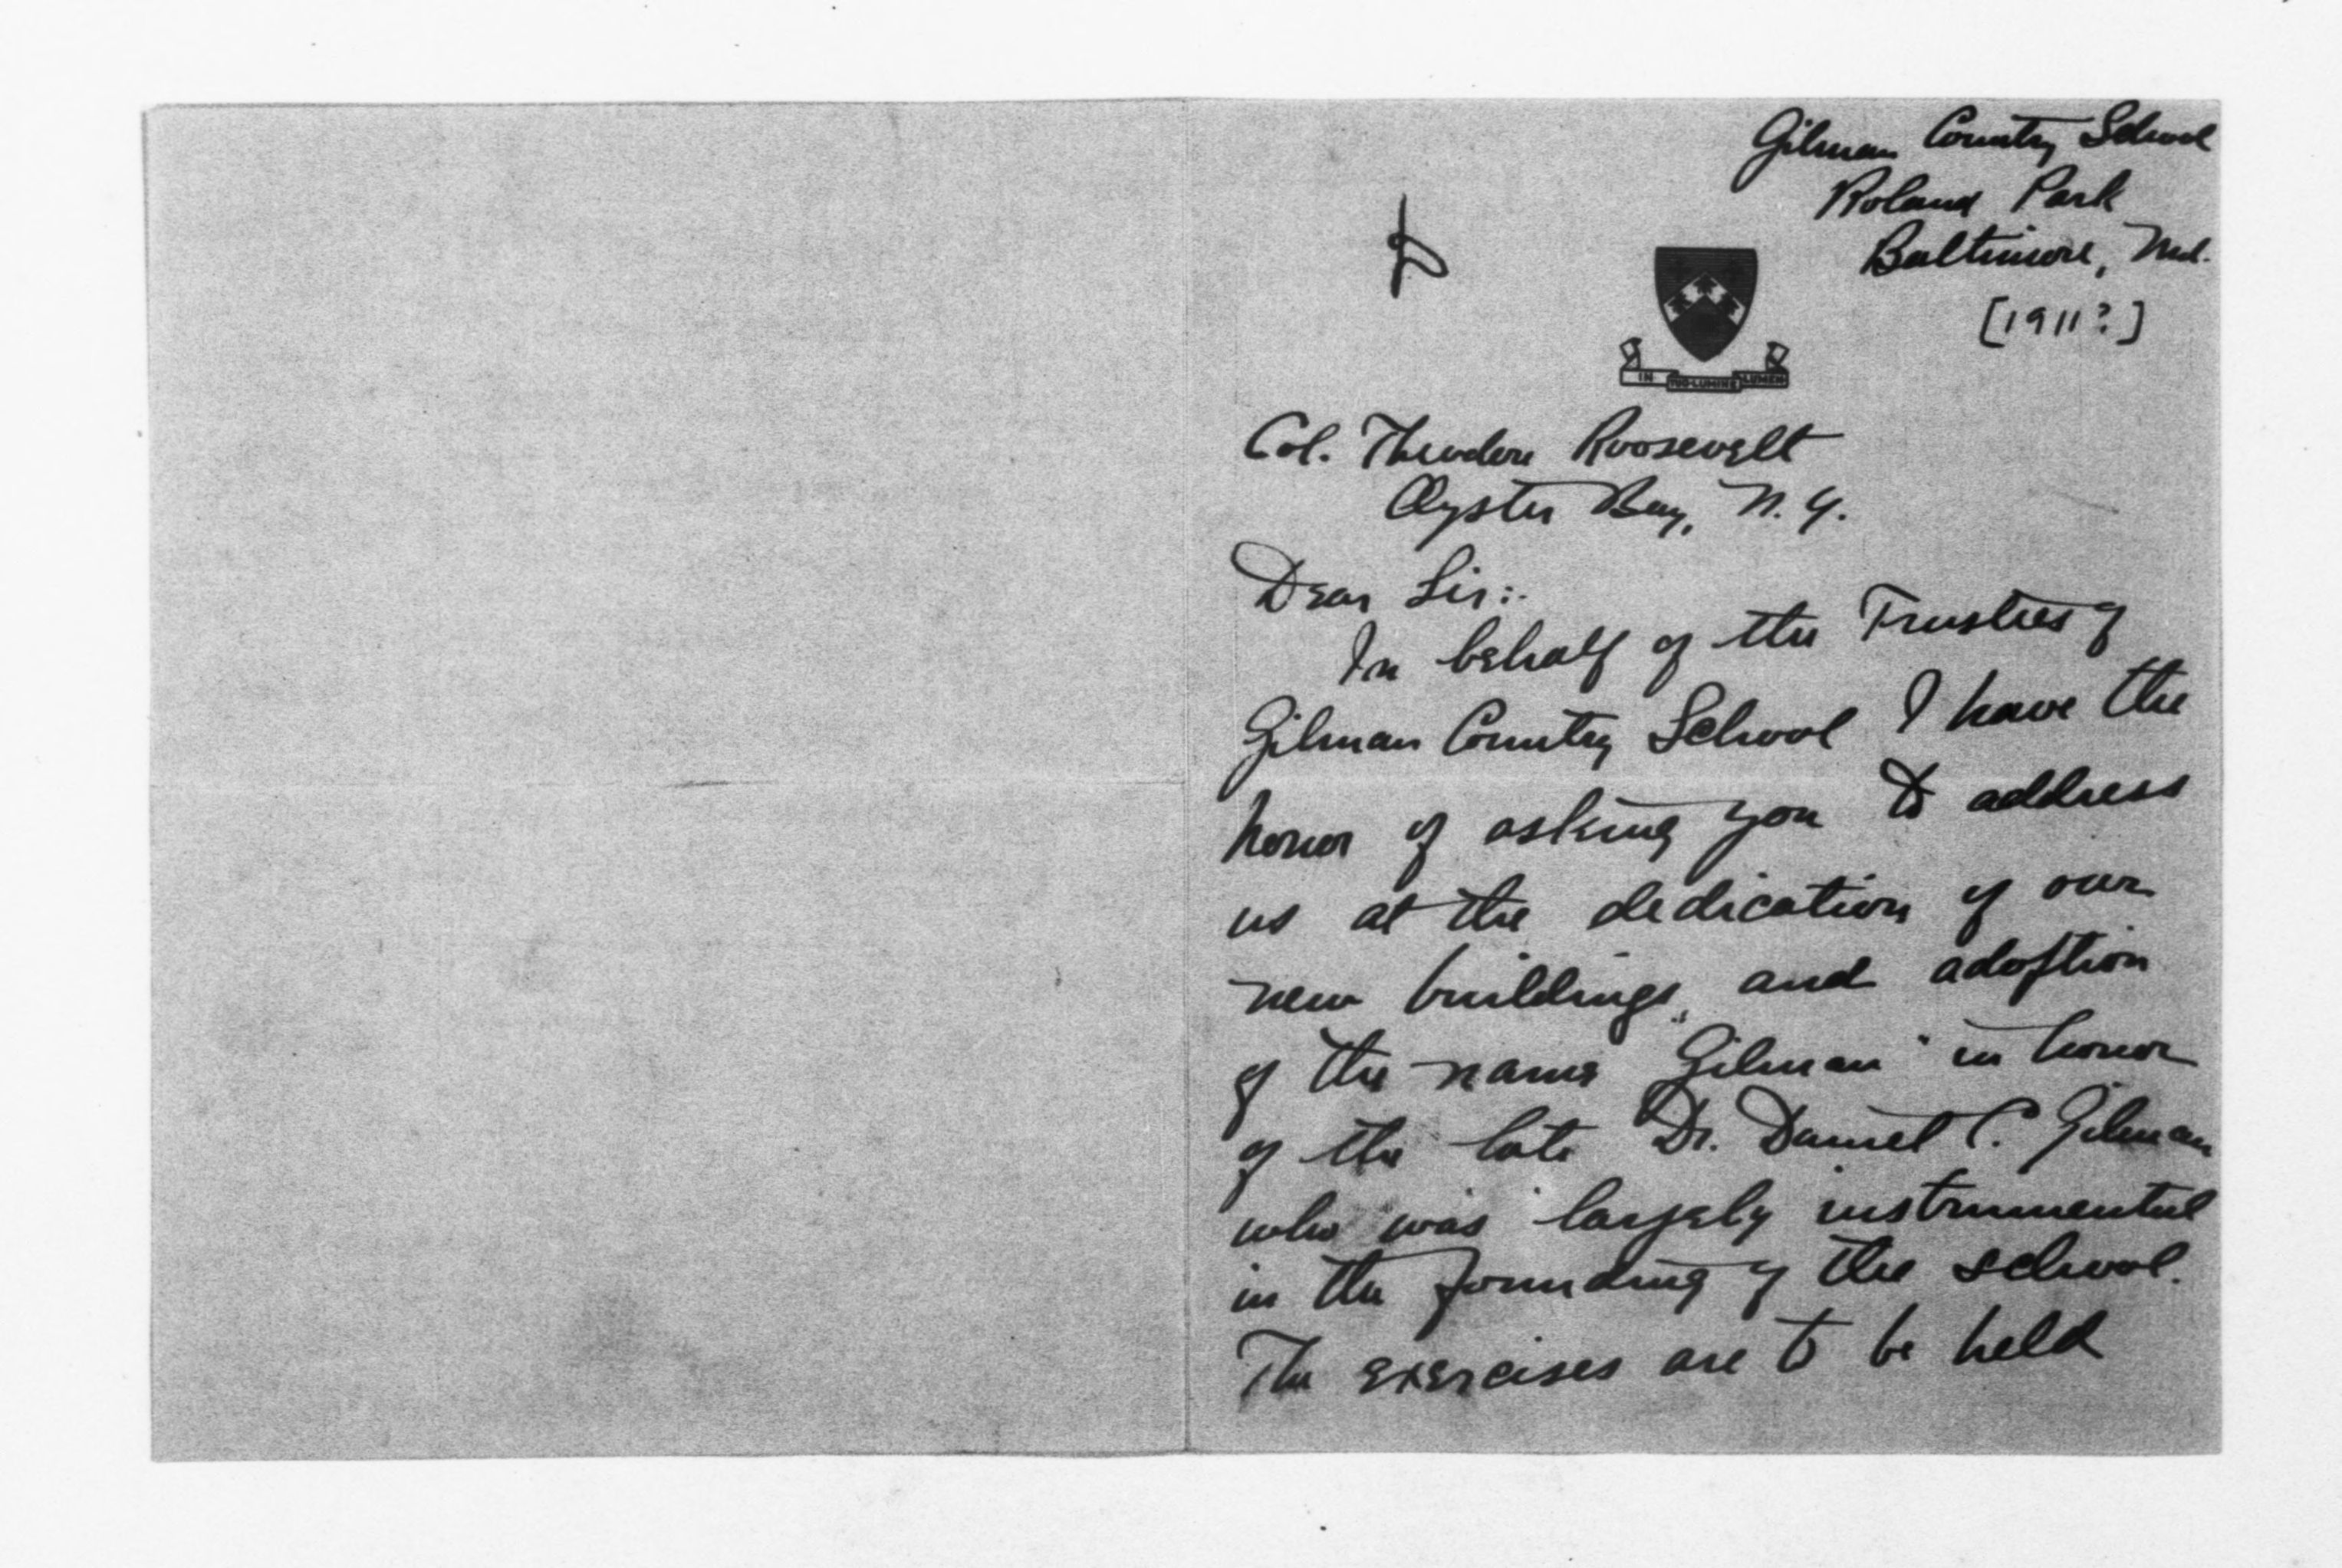 Gilman Country School
Roland Park
Baltimore, Md.
[1911?]
IN TUO LUMINE LUMEN
Col. Theodore Roosevelt
Oyster Bay, N. Y.
Dear Sir:.
In behalf of the Trustees of
Gilman Country School I have the
honor of asking you to address
us at the dedication of our
new buildings, and adoption
of the name "Gilman" in honor
of the late Dr. Daniel C. Gilman
who was largely instrumental
in the founding of the school.
The exercises are to be held